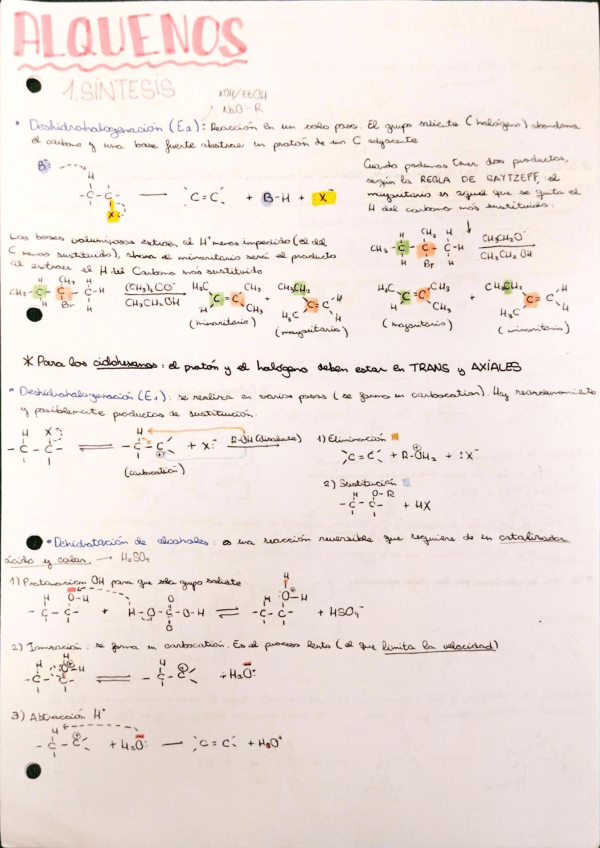 ALQUENOS
1. SÍNTESIS
KOH/EtOH
NaO-R
• Deshidrohalogenación (E2): Reacción en un solo paso. El grupo saliente (halógeno) abandona
el carbono y una base fuerte abstrae un protón de un C adyacente
B:⁻ H -C-C- X → C=C + B-H + :X⁻
Cuando podemos tener dos productos,
según la REGLA DE SAYTZEFF, el
mayoritario es aquel que se quita el
H del carbono más sustituido:
Las bases voluminosas extraen al H⁺ menos impedido (el del
C menos sustituido), ahora el minoritario será el producto
al extraer el H del Carbono más sustituido
CH3-C-C-C-H CH3 H H Br H CH3CH2O⁻ CH3CH2OH
CH3-C-C-C-H H CH3 H H Br H (CH3)3CO⁻ CH3CH2OH H3C H C=C CH3 CH3 + CH3CH2 H3C C=C H H
(minoritario) (mayoritario)
H3C H C=C CH3 CH3 + CH3CH2 H3C C=C H H
(mayoritario) (minoritario)
* Para los ciclohexanos: el protón y el halógeno deben estar en TRANS y AXIALES
• Deshidrohalogenación (E1): se realiza en varios pasos (se forma un carbocatión). Hay reordenamiento
y posiblemente productos de sustitución.
H X -C-C- ⇌ H -C-C⊕ + X:⁻ R-OH (disolvente)
(carbocatión)
1) Eliminación
C=C + R-OH2 ⊕ + :X⁻
2) Sustitución
H O-R -C-C- + HX
• Dehidratación de alcoholes: es una reacción reversible que requiere de un catalizador
ácido y calor → H2SO4
1) Protonación OH para que sea grupo saliente
H O-H -C-C- + H-O-S-O-H O O ⇌ H H :O-H ⊕ -C-C- + HSO4⁻
2) Ionización: se forma un carbocatión. Es el proceso lento (el que limita la velocidad)
H H :O-H ⊕ -C-C- ⇌ H -C-C⊕ + H2O:
3) Abtracción H⁺
H -C-C⊕ + H2O: → C=C + H3O⁺